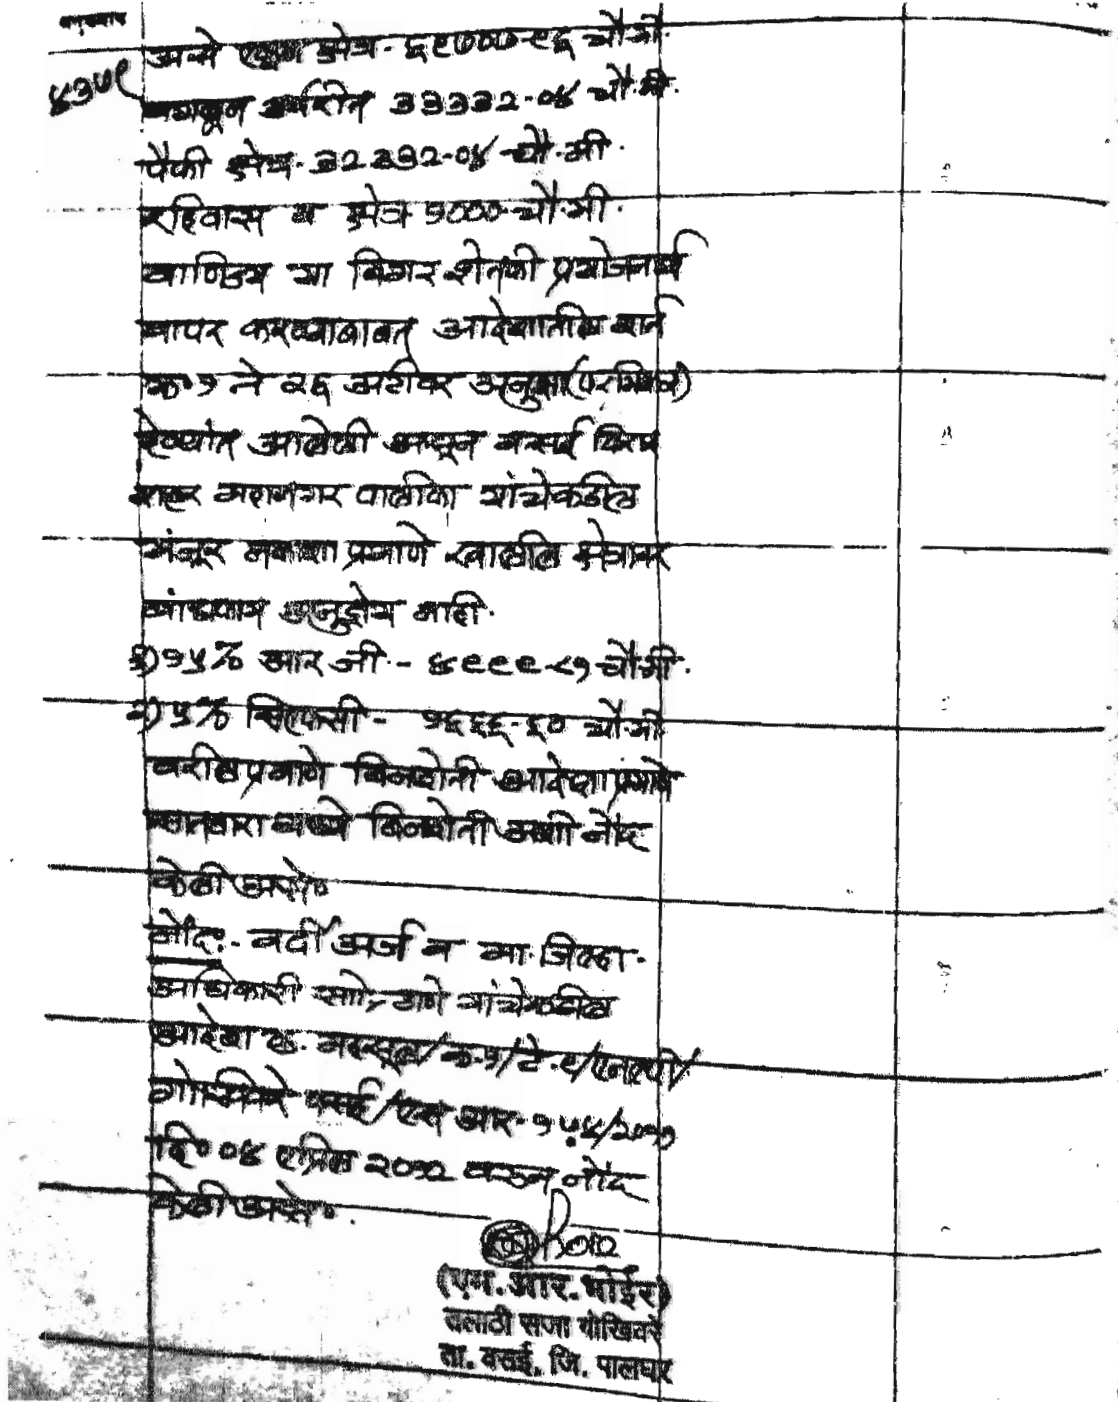 असे एकूण क्षेत्र - ६९७०७-९६ चौ.मी.
४३७९
वगळून उर्वरीत ३३३३२-०४ चौ.मी.
पैकी क्षेत्र - ३२३३२-०४ चौ.मी.
रहिवास व क्षेत्र १००० चौ.मी.
वाणिज्य या बिगर शेतकी प्रयोजनार्थ
वापर करण्याबाबत आदेशातील शर्त
क्र० १ ते २६ अटीवर अनुज्ञा
देण्यांत आलेली असून वसई विरार
शहर महानगर पालीका यांचेकडील
मंजूर नकाशा प्रमाणे खालील क्षेत्रावर
बांधकाम अनुज्ञेय नाही.
१) १५% आर जी. - ४९९९-८१ चौ.मी.
२) ५% सिएफसी - १६६६-६० चौ.मी
वरील प्रमाणे बिनशेती आदेशा प्रमाणे
सातबारा मध्ये बिनशेती अशी नोंद
केली असे०
नोंद:- वर्दी अर्ज व मा. जिल्हा.
अधिकारी सो, ठाणे यांचेकडील
आदेश क्र. महसूल/क-१/टे-९/एनएपी/
गोखिवरे वसई/एस आर-१५४/२०११
दि० ०४ एप्रिल २०१२ वरुन नोंद
केली असे०.
(एम. आर. भोईर)
तलाठी सजा गोखिवरे
ता. वसई, जि. पालघर